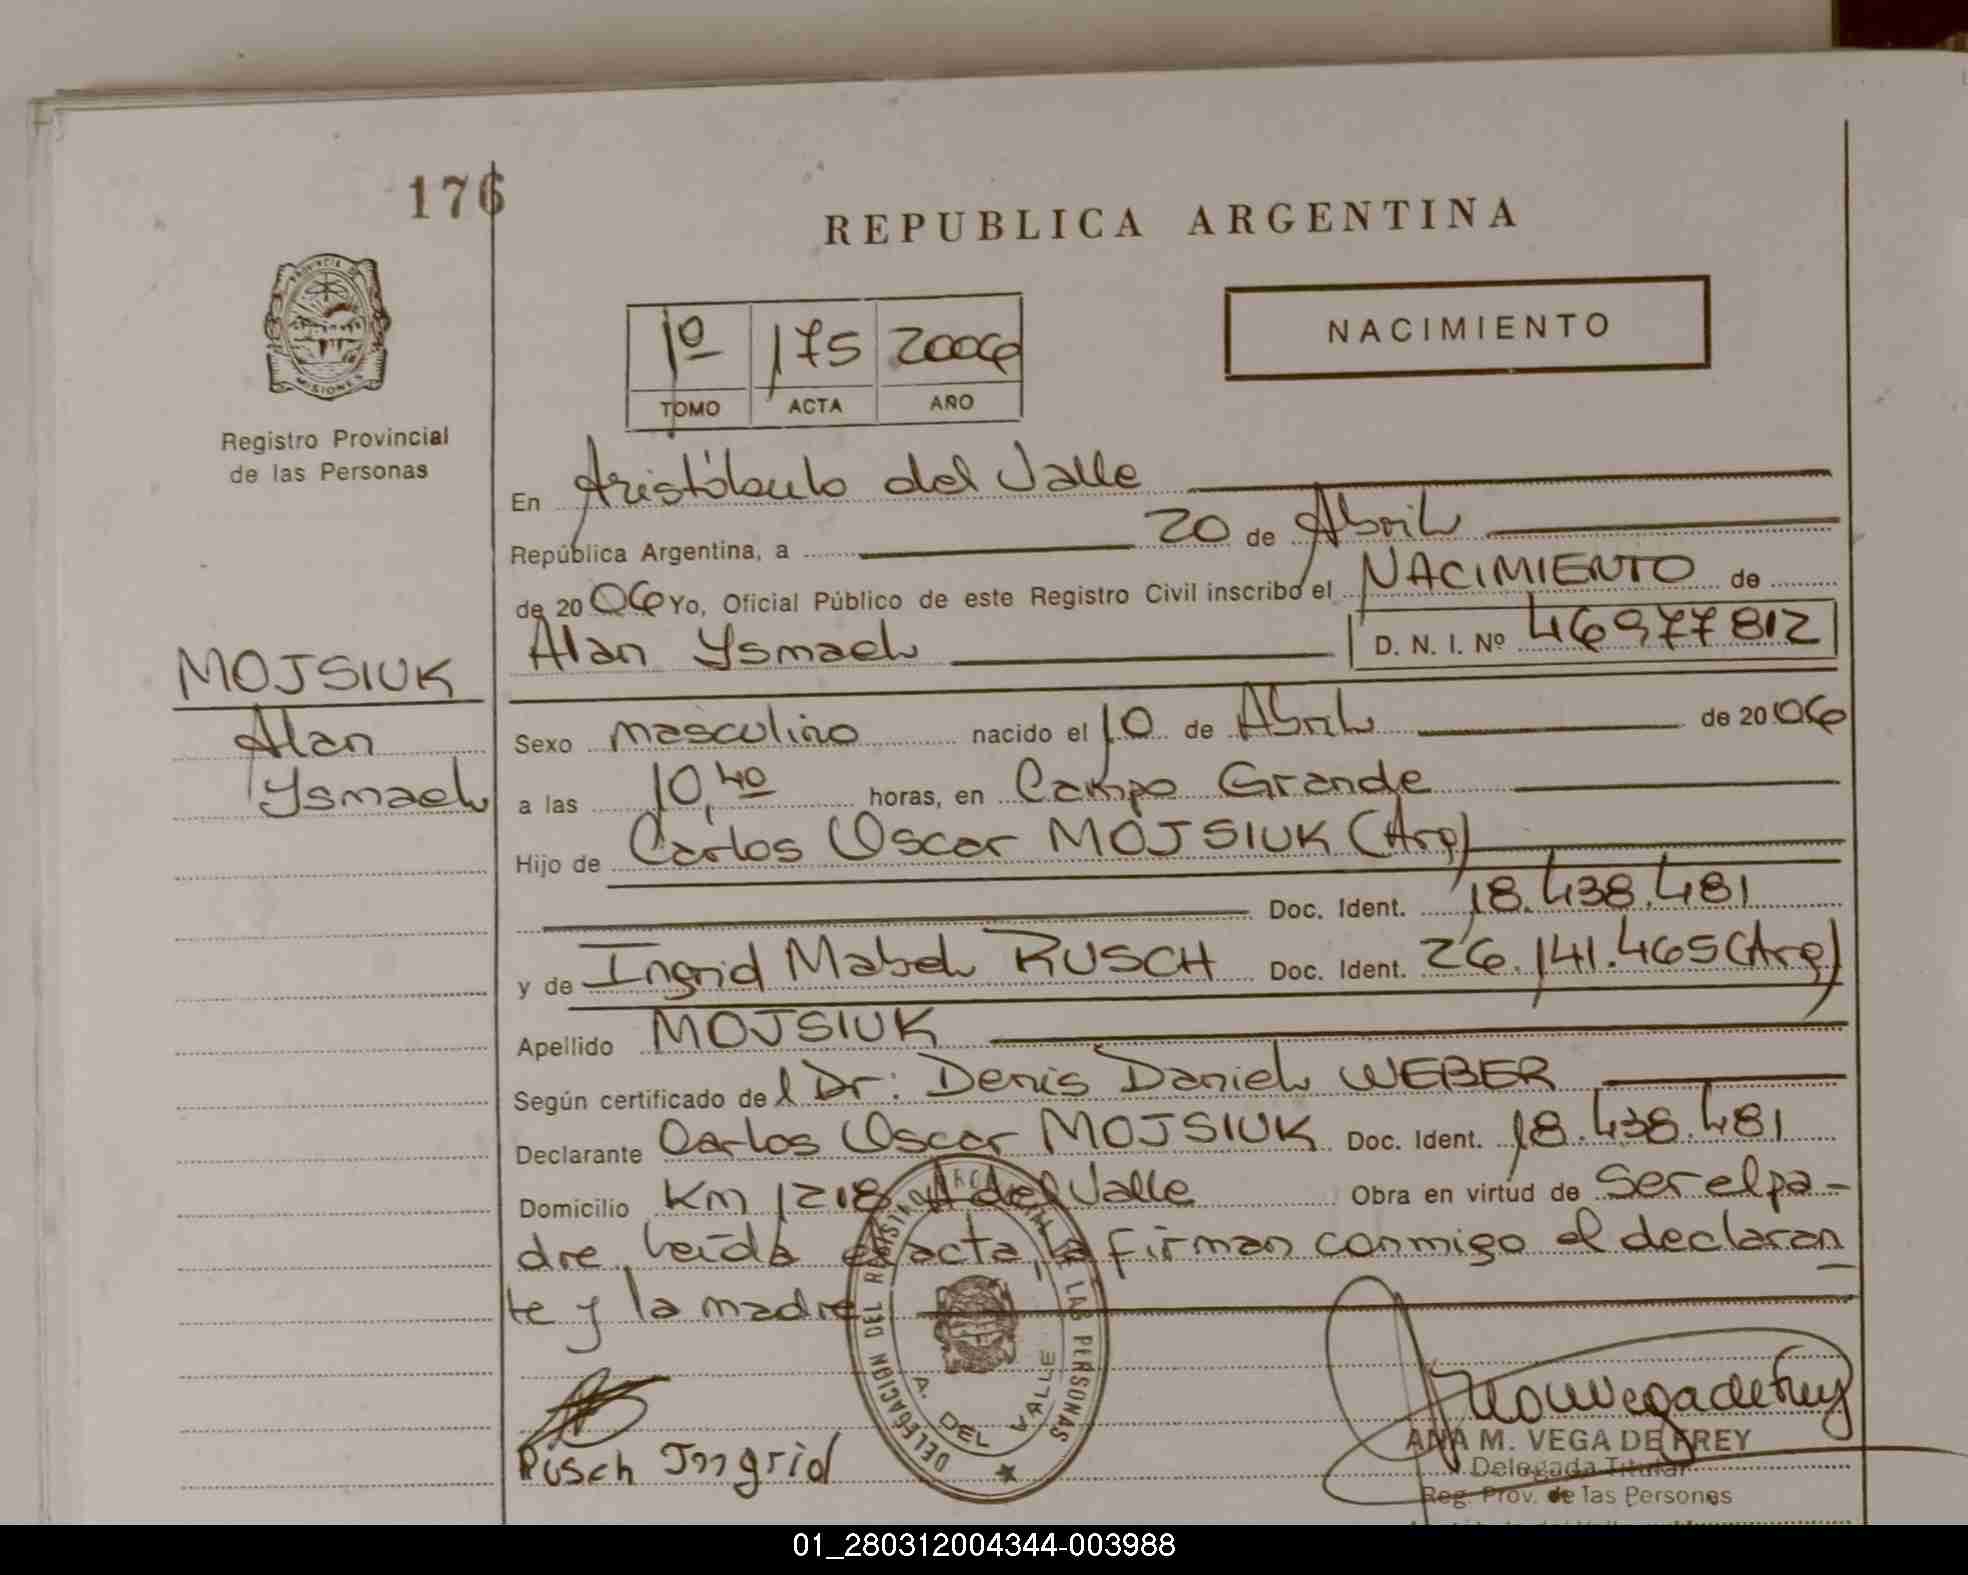 176
REPUBLICA ARGENTINA
PROVINCIA DE
MISIONES
Registro Provincial
de las Personas
1º 175 2006
TOMO ACTA AÑO
NACIMIENTO
En Aristóbulo del Valle
República Argentina, a 20 de Abril
de 2006 Yo, Oficial Público de este Registro Civil inscribo el NACIMIENTO de
Alan Ysmael D. N. I. Nº 46977812
MOJSIUK
Alan
Ysmael
Sexo masculino nacido el 10 de Abril de 2006
a las 10,40 horas, en Campo Grande
Hijo de Carlos Oscar MOJSIUK (Arg)
Doc. Ident. 18.438.481
y de Ingrid Mabel RUSCH Doc. Ident. 26.141.465 (Arg)
Apellido MOJSIUK
Según certificado del Dr: Denis Daniel WEBER
Declarante Carlos Oscar MOJSIUK Doc. Ident. 18.438.481
Domicilio Km 1218 A del Valle Obra en virtud de ser el pa-
dre, leída el acta, la firman conmigo el declaran
te y la madre
DELEGACION DEL REGISTRO PROVINCIAL DE LAS PERSONAS
A. DEL VALLE
Rusch Ingrid
ANA M. VEGA DE FREY
Delegada Titular
Reg. Prov. de las Personas
01_280312004344-003988